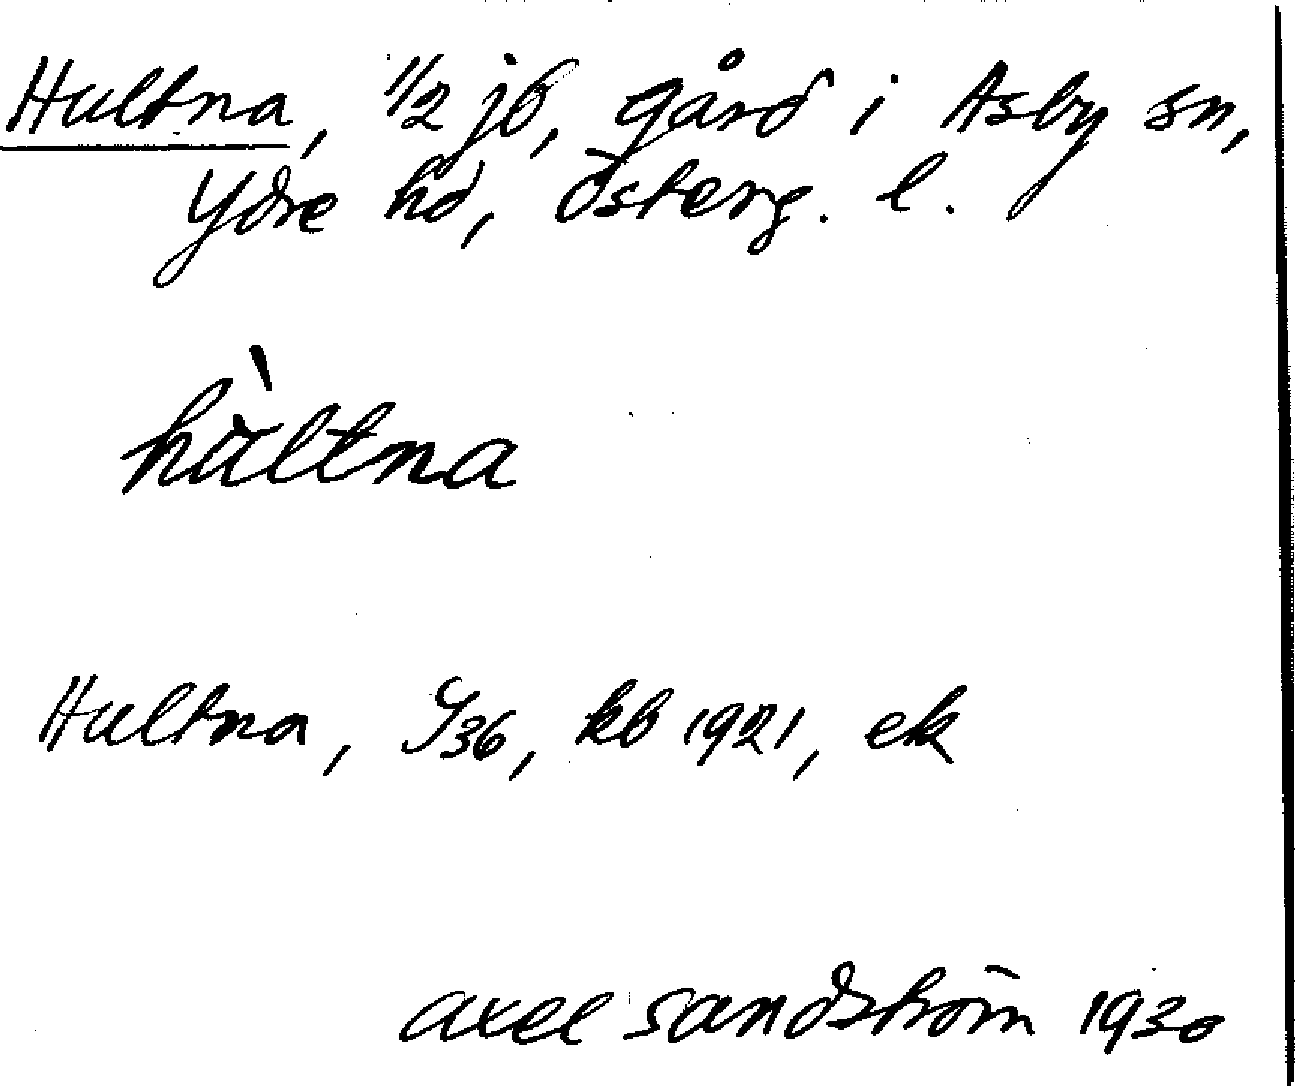 Hultna, 1/2 jb, gård i Asby sn,
Ydre hd, Österg. l.
hùltna
Hultna, 9/36, kb 1921, ek
axel sandström 1930